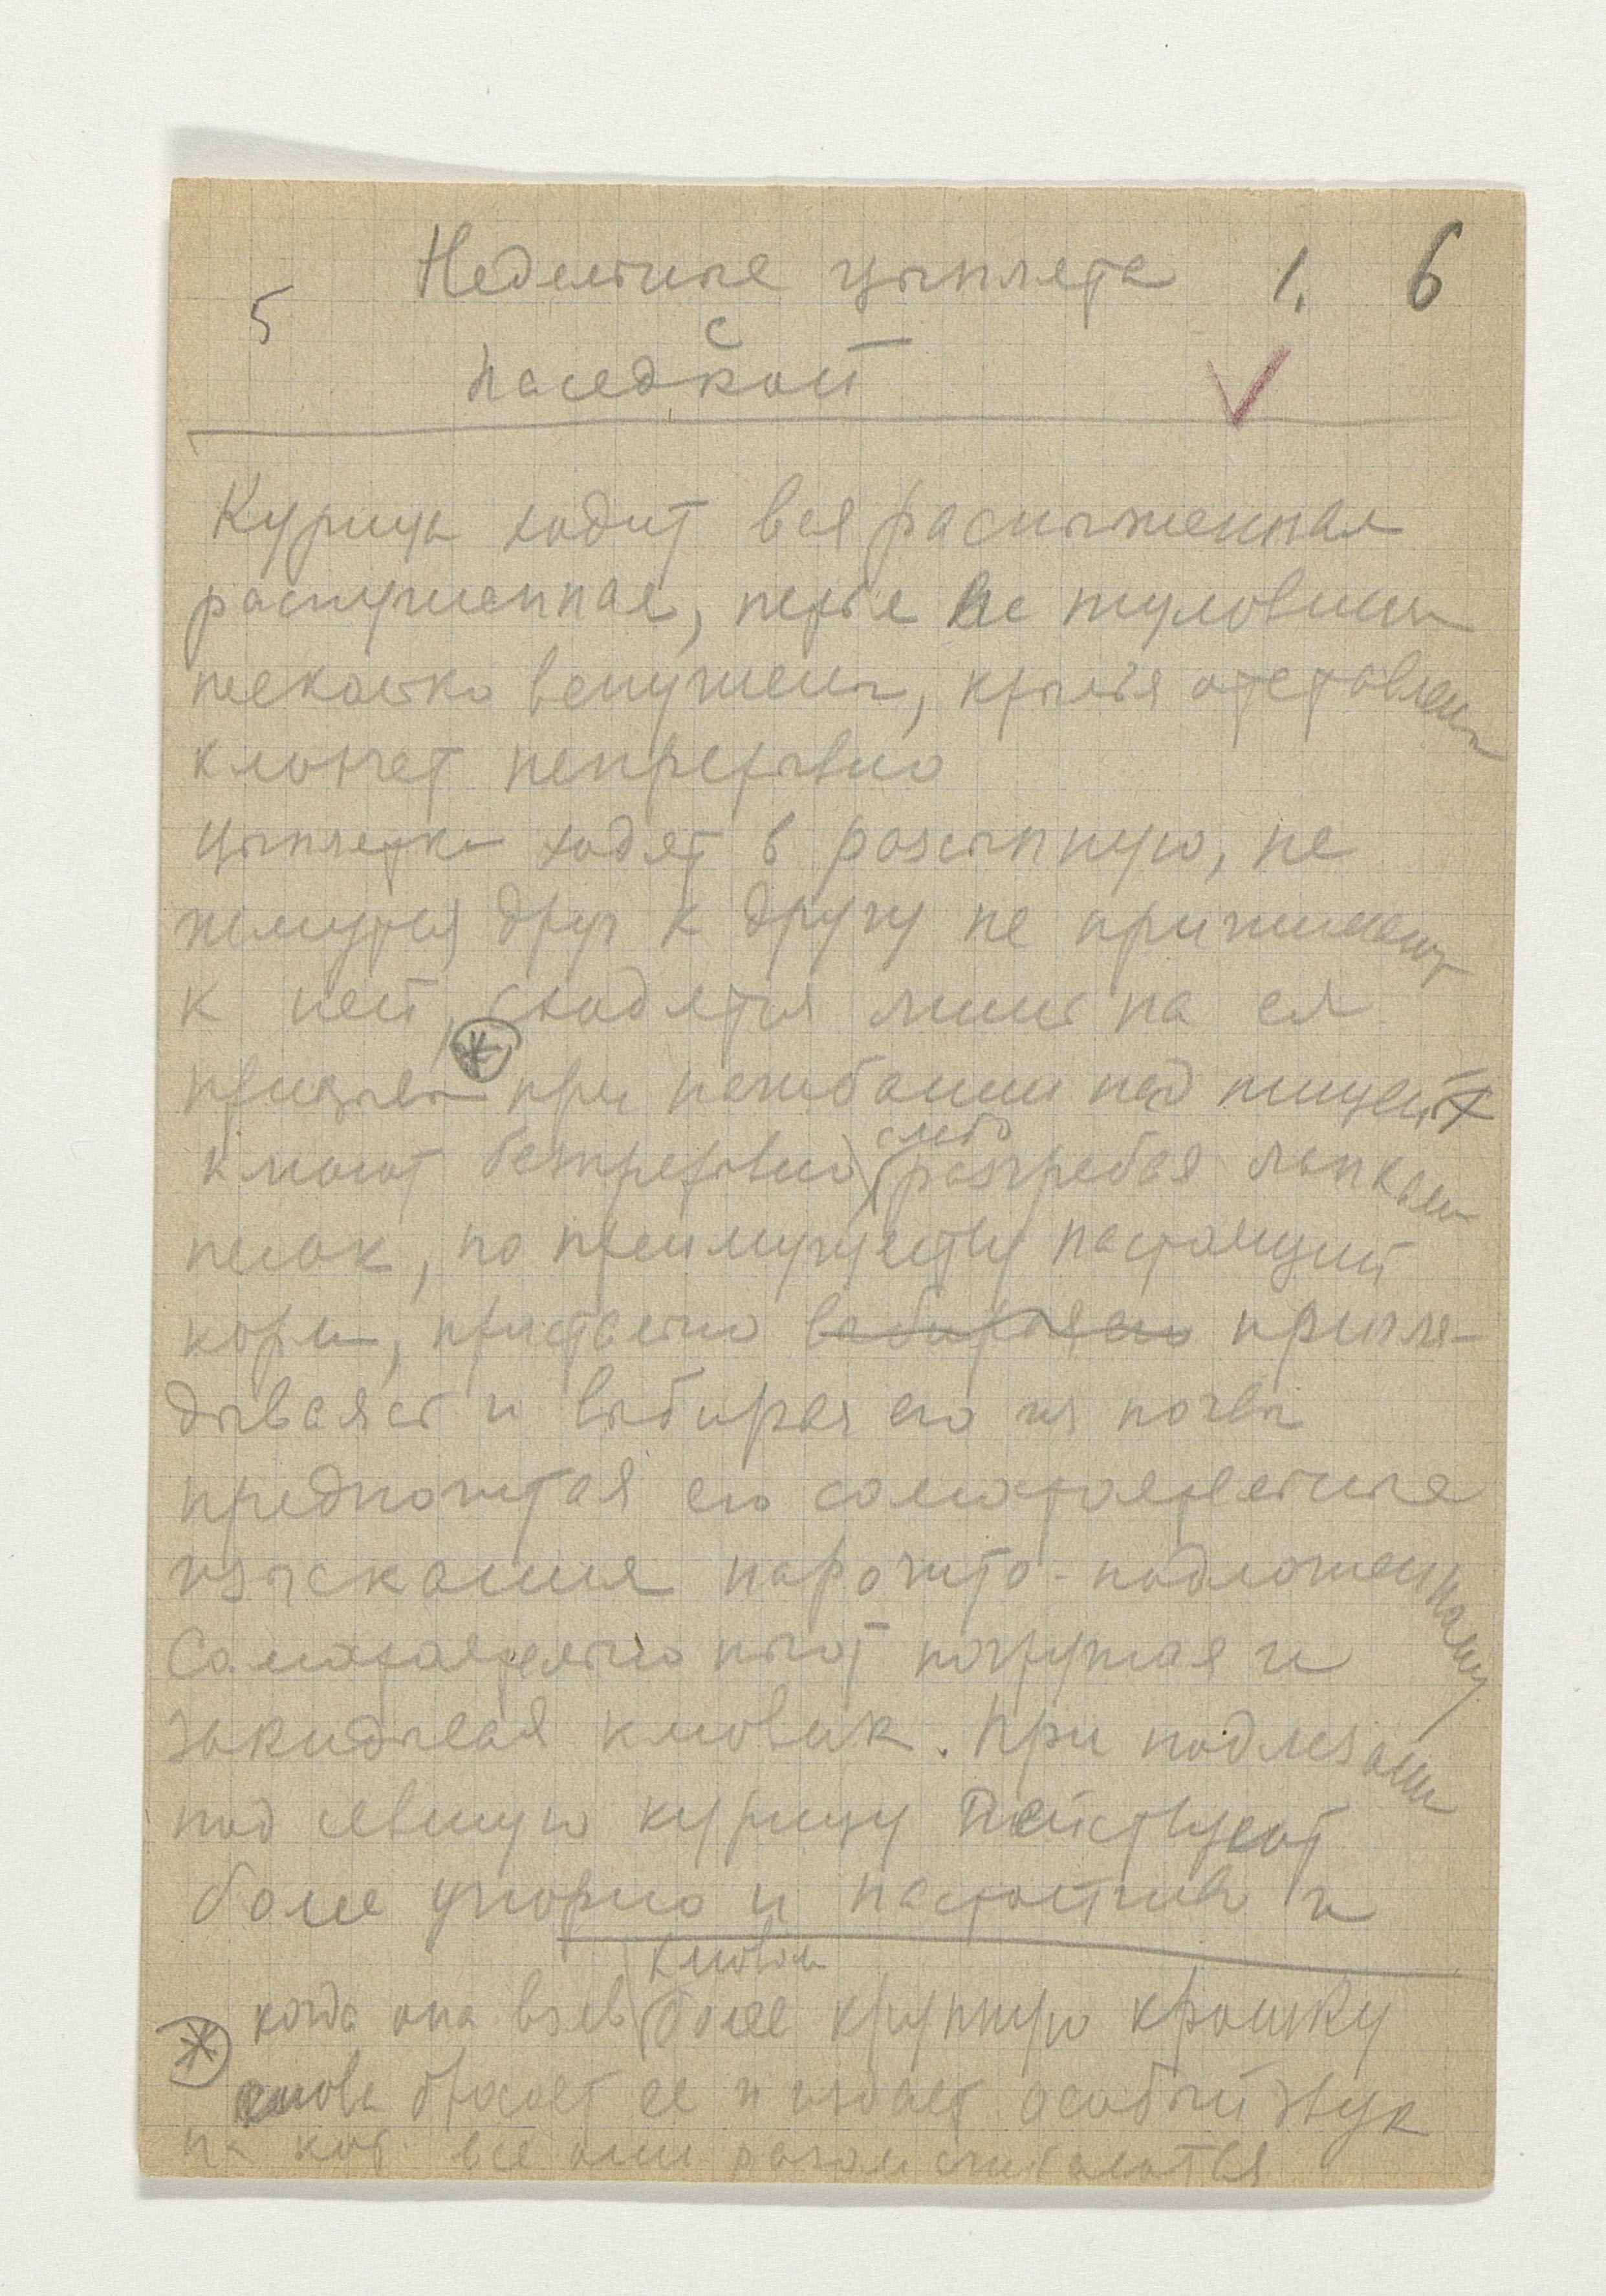 Недельные цыплята 1. 6
5 с
наседкой
Курица ходит вся распыженная
распушенная, перья на туловище
несколько вспушены, крылья отставлены
клохчет непрерывно
Цыплятки ходят в розсыпную, не
жмутся друг к другу не прижимаются
к ней, сходятся лишь на ея
призыв ⊛ при нагибании над пищей ×
клюют безпрерывно слабо разгребая лапками
песок, по преимуществу настоящий
корм, пристально выбирая его пригля-
дываясь и выбирая его из почвы
предпочитая его самостоятельные
изыскания нарочито-подложенному
Самостоятельно пьют погружая и
закидывая клювик. При подлезании
под севшую курицу действуют
более упорно и настойчиво и
клювом
⊛ когда она взяв более крупную крошку
снова бросает ее и издает особый звук
на кот. все они разом сбегаются